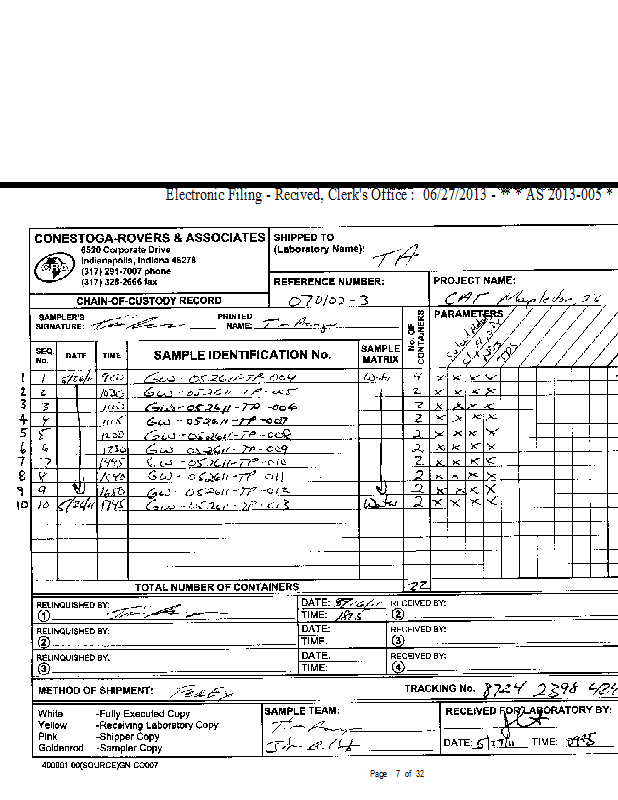 Electronic Filing - Recived, Clerk's Office : 06/27/2013 - * * AS 2013-005 *
CONESTOGA-ROVERS & ASSOCIATES
6520 Corporate Drive
Indianapolis, Indiana 46278
(317) 291-7007 phone
(317) 328-2666 fax
CHAIN-OF-CUSTODY RECORD
SHIPPED TO
(Laboratory Name): TA
REFERENCE NUMBER:
070102-3
PROJECT NAME:
CAT Mapleton, IL
SAMPLER'S
SIGNATURE:
PRINTED
NAME:
No. OF CONTAINERS
PARAMETERS
SEQ. No. DATE TIME SAMPLE IDENTIFICATION No. SAMPLE MATRIX
TDS
1 1 5/26/11 900 GW-052611-TP-004 Water 4 x x x x
2 2 1020 GW-052611-TP-005 2 x x x x
3 3 GW-052611-TP-006 2 x x x x
4 4 1115 GW-052611-TP-007 2 x x x x
5 5 1200 GW-052611-TP-008 2 x x x x
6 6 1230 GW-052611-TP-009 2 x x x x
7 7 1445 GW-052611-TP-010 2 x x x x
8 8 1540 GW-052611-TP-011 2 x x x x
9 9 1650 GW-052611-TP-012 2 x x x x
10 10 5/26/11 1745 GW-052611-TP-013 Water 2 x x x x
TOTAL NUMBER OF CONTAINERS 22
RELINQUISHED BY:
1
DATE:
TIME:
RECEIVED BY:
2
RELINQUISHED BY:
2
DATE:
TIME:
RECEIVED BY:
3
RELINQUISHED BY:
3
DATE:
TIME:
RECEIVED BY:
4
METHOD OF SHIPMENT: FedEx
TRACKING No. 8724 2398
White -Fully Executed Copy
Yellow -Receiving Laboratory Copy
Pink -Shipper Copy
Goldenrod -Sampler Copy
SAMPLE TEAM:
RECEIVED FOR LABORATORY BY:
DATE: 5/27/11 TIME: 0945
400001 00(SOURCE)GN-CO007
Page 7 of 32